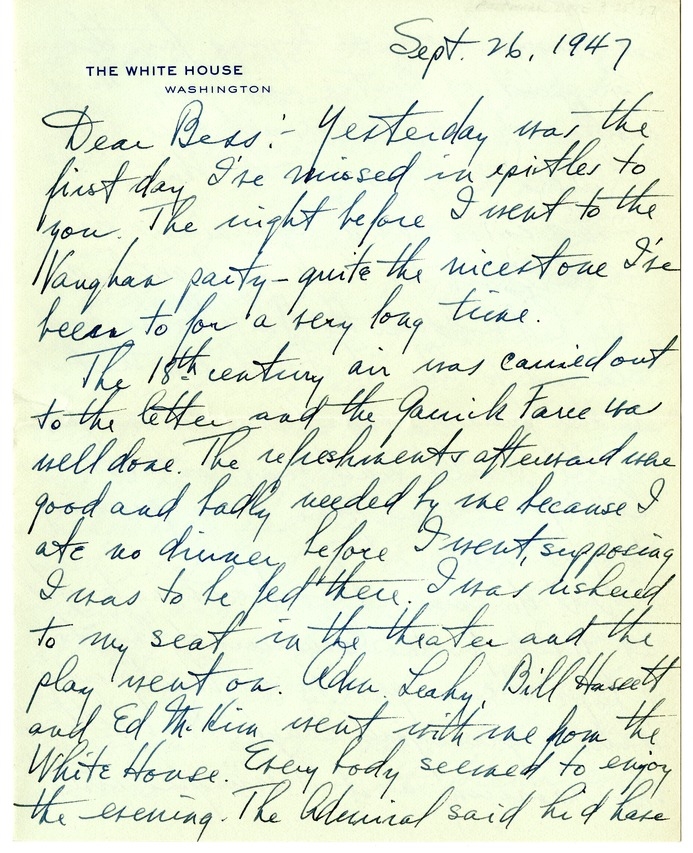 Sept. 26, 1947
THE WHITE HOUSE
WASHINGTON
Dear Bess:- Yesterday was the
first day I've missed in epistles to
you. The night before I went to the
Vaughan party - quite the nicest one I've
been to for a very long time.
The 18th century air was carried out
to the letter and the Garrick Farce was
well done. The refreshments afterward were
good and badly needed by me because I
ate no dinner before I went, supposing
I was to be fed there. I was ushered
to my seat in the theater and the
play went on. Adm. Leahy, Bill Hassett
and Ed McKim went with me from the
White House. Every body seemed to enjoy
the evening. The Admiral said he'd have